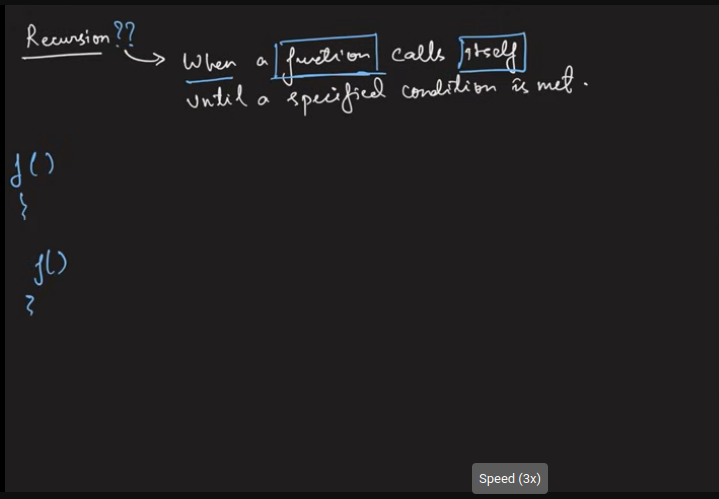 Recursion ??
When a function calls itself
until a specified condition is met.
f()
{
f()
}
Speed (3x)